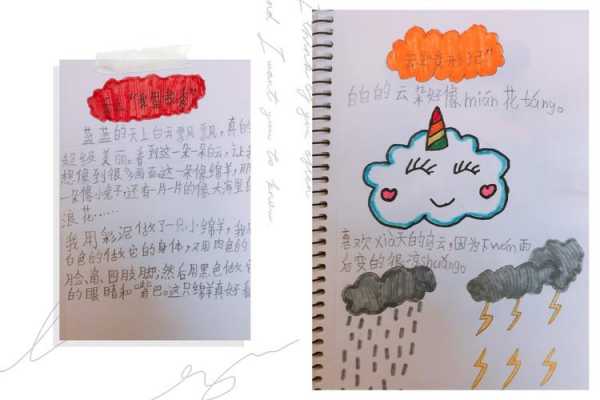 蓝蓝的天上白云飘飘,真的
超级美丽。看到这一朵一朵白云,让我
想像到很多画面这一朵像绵羊,那
一朵像小兔子,还有一片一片的像大海里的
浪花……
我用彩泥做了一只小绵羊,我用
白色的做它的身体,又用肉色的
脸、角、四肢脚,然后用黑色做它
的眼睛和嘴巴。这只绵羊真好看
白白的云朵好像mián花táng。
喜欢xià天的乌云,因为下wán雨
后变的很凉shuǎng。